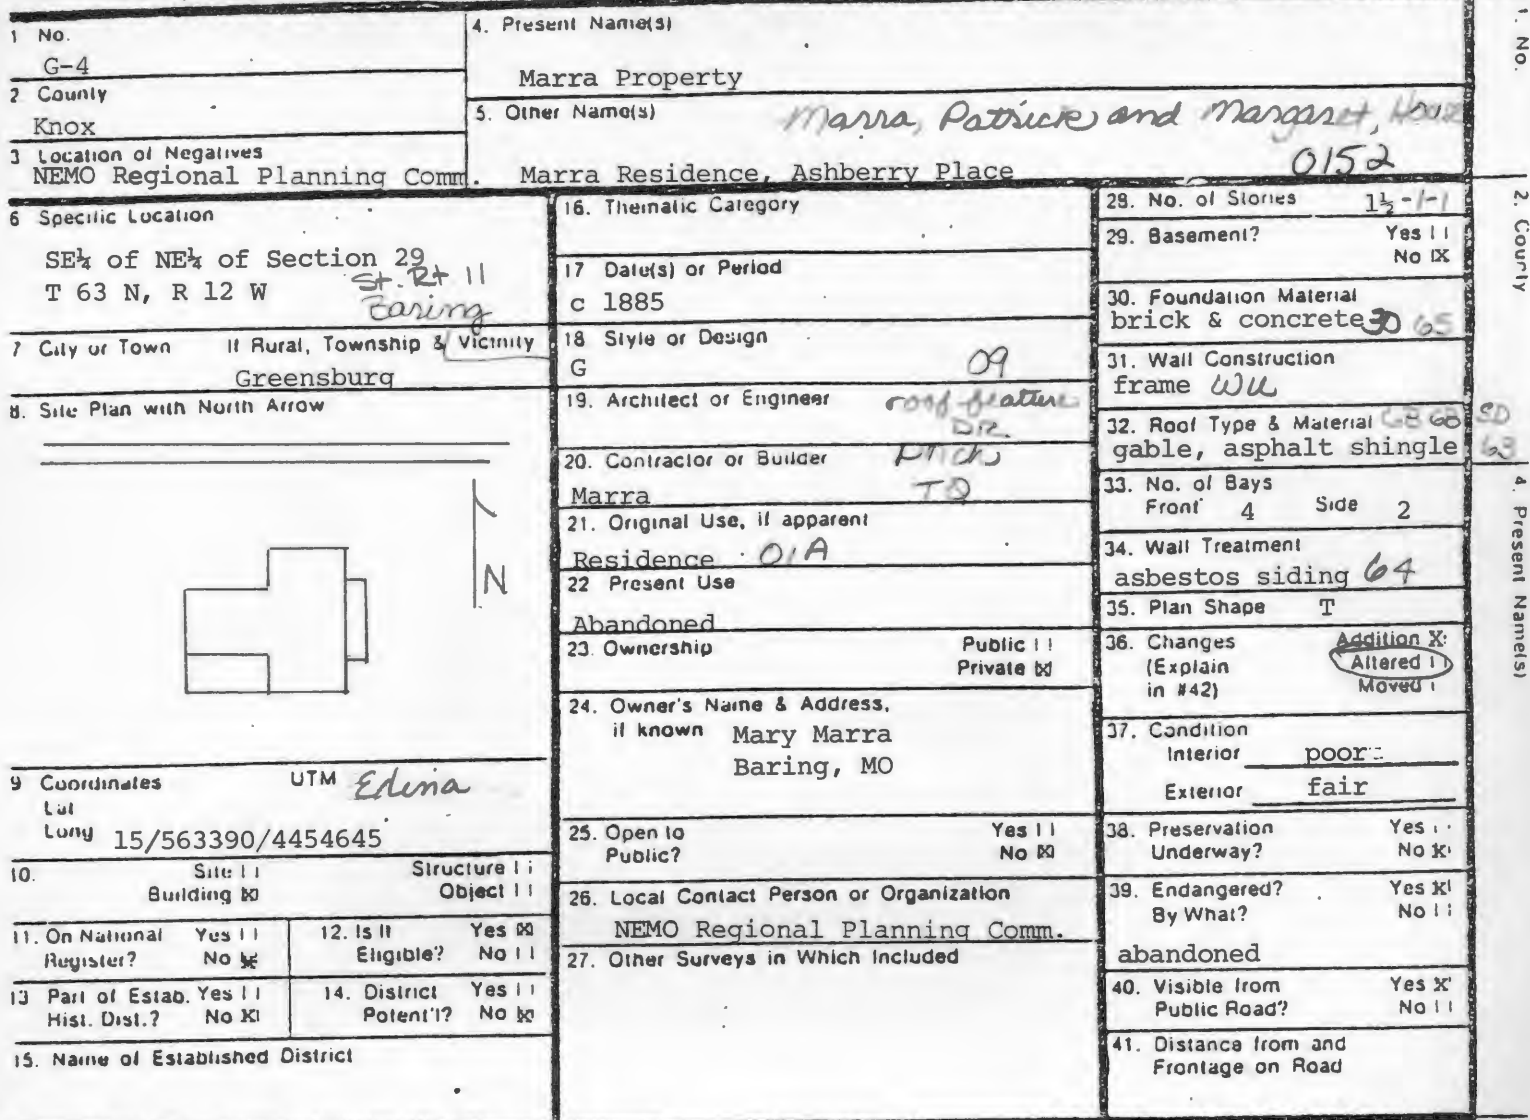 1 No.
G-4
2 County
Knox
3 Location of Negatives
NEMO Regional Planning Comm.
4. Present Name(s)
Marra Property
5. Other Name(s)
Marra, Patrick and Margaret, House
0152
Marra Residence, Ashberry Place
6 Specific Location
SE¼ of NE¼ of Section 29
T 63 N, R 12 W
St. Rt 11
Baring
7 City or Town If Rural, Township & Vicinity
Greensburg
8. Site Plan with North Arrow
N
9 Coordinates UTM Edina
Lat
Long 15/563390/4454645
10. Site [ ] Structure [ ]
Building [X] Object [ ]
11. On National Yes [ ]
Register? No [X]
12. Is It Yes [X]
Eligible? No [ ]
13 Part of Estab. Yes [ ]
Hist. Dist.? No [X]
14. District Yes [ ]
Potent'l? No [X]
15. Name of Established District
16. Thematic Category
17 Date(s) or Period
c 1885
18 Style or Design
G 09
19. Architect or Engineer
roof feature
DR
20. Contractor or Builder
Marra TQ
21. Original Use, if apparent
Residence 01A
22 Present Use
Abandoned
23. Ownership Public [ ]
Private [X]
24. Owner's Name & Address,
if known Mary Marra
Baring, MO
25. Open to Yes [ ]
Public? No [X]
26. Local Contact Person or Organization
NEMO Regional Planning Comm.
27. Other Surveys in Which Included
28. No. of Stories 1½-1-1
29. Basement? Yes [ ]
No [X]
30. Foundation Material
brick & concrete 30 65
31. Wall Construction
frame WU
32. Roof Type & Material GB 68 SD
gable, asphalt shingle 63
33. No. of Bays
Front 4 Side 2
34. Wall Treatment
asbestos siding 64
35. Plan Shape T
36. Changes Addition X
(Explain Altered [ ]
in #42) Moved [ ]
37. Condition
Interior poor
Exterior fair
38. Preservation Yes [ ]
Underway? No [X]
39. Endangered? Yes [X]
By What? No [ ]
abandoned
40. Visible from Yes [X]
Public Road? No [ ]
41. Distance from and
Frontage on Road
1. No.
2. County
4. Present Name(s)